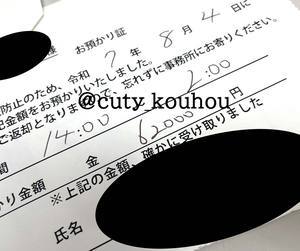 お預かり証
防止のため、令和 7 年 8 月 4 日に
記金額をお預かりいたしました。
ご返却となりますので、忘れずに事務所にお寄りください。
@cuty_kouhou
間 14:00 2:00
かり金額 金 62000 円
※上記の金額、確かに受け取りました
氏名